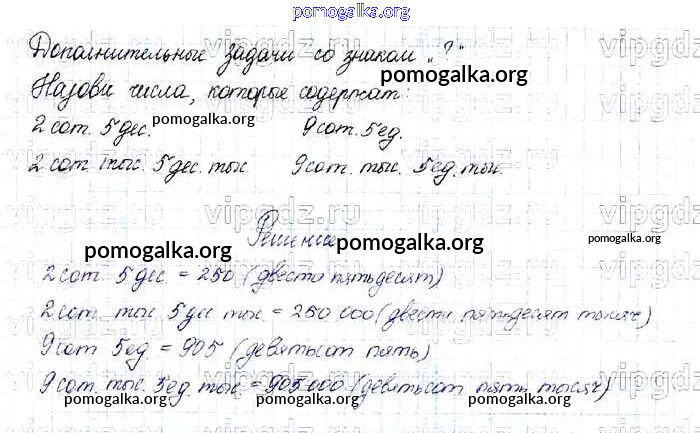 pomogalka.org
Дополнительные задачи со знаком „?“
pomogalka.org
Назови числа, которые содержат:
2 сот. 5 дес. 9 сот. 5 ед.
pomogalka.org
2 сот. тыс. 5 дес. тыс. 9 сот. тыс. 5 ед. тыс.
Решение
pomogalka.org pomogalka.org pomogalka.org
2 сот 5 дес = 250 (двести пятьдесят)
2 сот тыс. 5 дес тыс. = 250 000 (двести пятьдесят тысяч)
9 сот 5 ед = 905 (девятьсот пять)
9 сот. тыс. 5 ед. тыс = 905 000 (девятьсот пять тысяч)
pomogalka.org pomogalka.org pomogalka.org